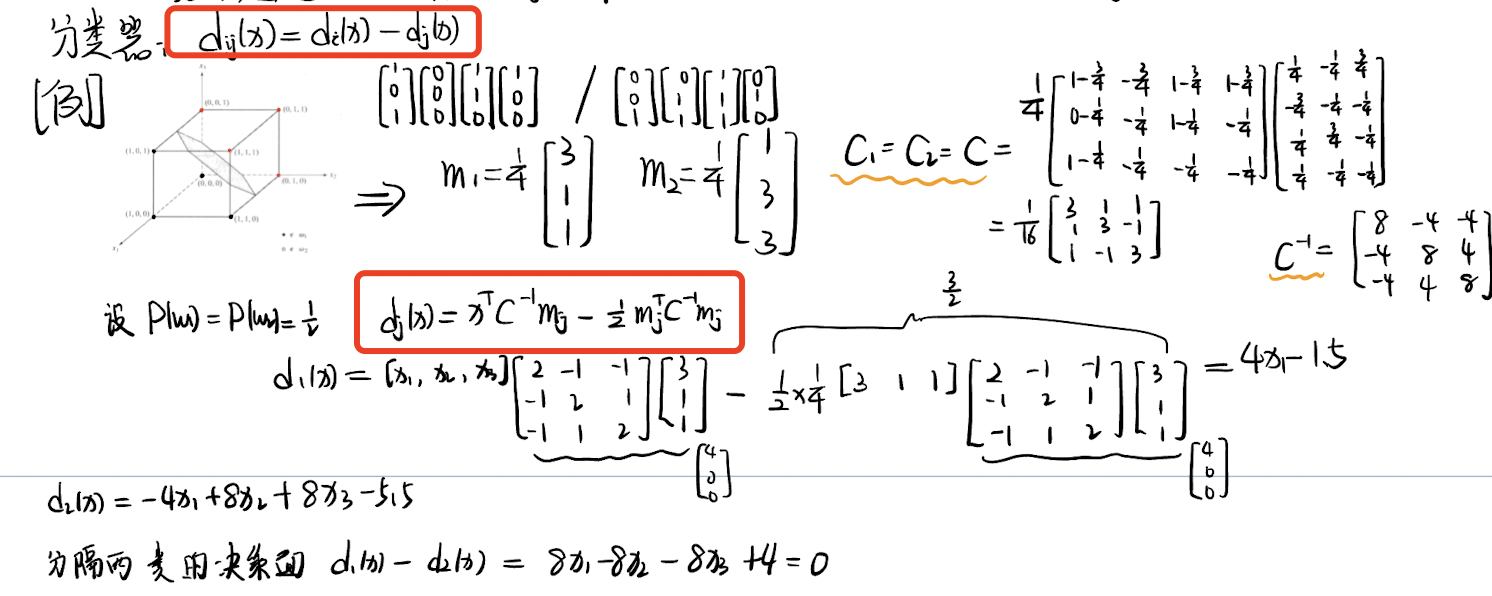 分类器: d_{ij}(x) = d_i(x) - d_j(x)
[例]
x_3
(0, 0, 1)
(0, 1, 1)
(1, 0, 1)
(1, 1, 1)
(0, 0, 0)
(0, 1, 0)
x_2
(1, 0, 0)
(1, 1, 0)
x_1
• ∈ ω_1
○ ∈ ω_2
[1 0 1]^T [0 0 0]^T [1 1 0]^T [1 0 0]^T / [0 0 1]^T [0 1 1]^T [1 1 1]^T [0 1 0]^T
⇒ m_1 = 1/4 [3 1 1]^T m_2 = 1/4 [1 3 3]^T
C_1 = C_2 = C = 1/4 [1-3/4 -3/4 1-3/4 1-3/4; 0-1/4 -1/4 1-1/4 -1/4; 1-1/4 -1/4 -1/4 -1/4] [1/4 -1/4 3/4; -3/4 -1/4 -1/4; 1/4 3/4 -1/4; 1/4 -1/4 -1/4]
= 1/16 [3 1 1; 1 3 -1; 1 -1 3]
C^{-1} = [8 -4 -4; -4 8 4; -4 4 8]
设 P(ω_1) = P(ω_2) = 1/2 d_j(x) = x^T C^{-1} m_j - 1/2 m_j^T C^{-1} m_j
3/2
d_1(x) = [x_1, x_2, x_3] [2 -1 -1; -1 2 1; -1 1 2] [3 1 1]^T - 1/2 × 1/4 [3 1 1] [2 -1 -1; -1 2 1; -1 1 2] [3 1 1]^T = 4x_1 - 1.5
[4 0 0]^T [4 0 0]^T
d_2(x) = -4x_1 + 8x_2 + 8x_3 - 5.5
分隔两类的决策面 d_1(x) - d_2(x) = 8x_1 - 8x_2 - 8x_3 + 4 = 0